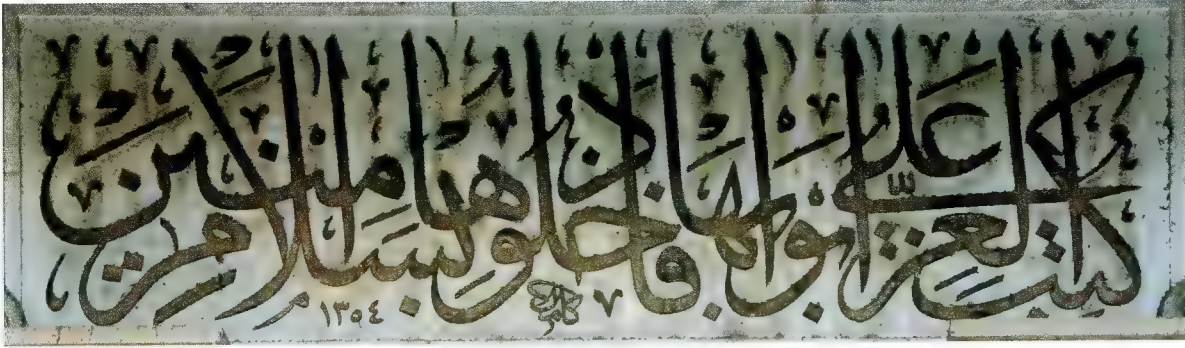 كتب العز على ابوابها فادخلوها بسلام امنين
كامل
١٣٥٤